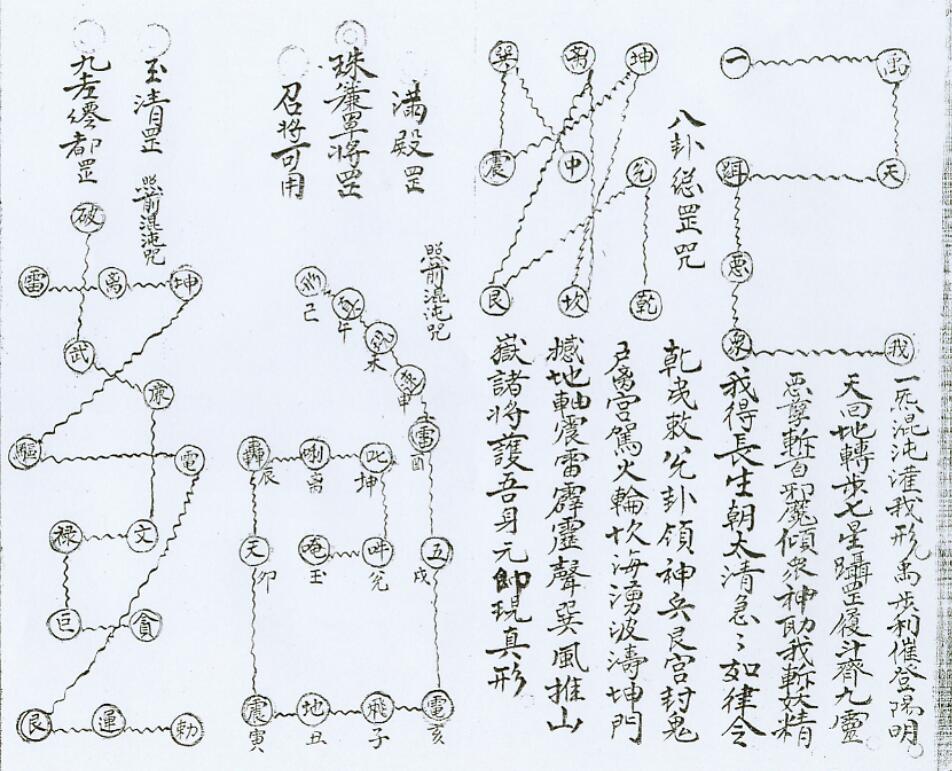 禹
一
天
斗
惡
衆
我
一炁混沌灌我形禹步相催登陽明
天回地轉步七星躡罡履斗齊九靈
惡孽斬首邪魔傾衆神助我斬妖精
我得長生朝太清急〻如律令
八卦總罡咒
坤
离
巽
震
中
兌
艮
坎
乾
乾曳救兌卦領神兵艮宮封鬼
戶离宮駕火輪坎海湧波濤坤門
撼地軸震雷霹靂聲巽風推山
嶽諸將護吾身元帥現真形
滿殿罡
珠簾罩將罡
召將可用
照前混沌咒
己
午
未
申
雷 酉
五 戌
電 亥
飛 子
地 丑
震 寅
天 卯
轟 辰
喇 离
叱 坤
吽 兌
唵 玉
玉清罡
照前混沌咒
九老僊都罡
破
雷
离
坤
武
廉
驅
電
祿
文
巨
貪
艮
運
勅